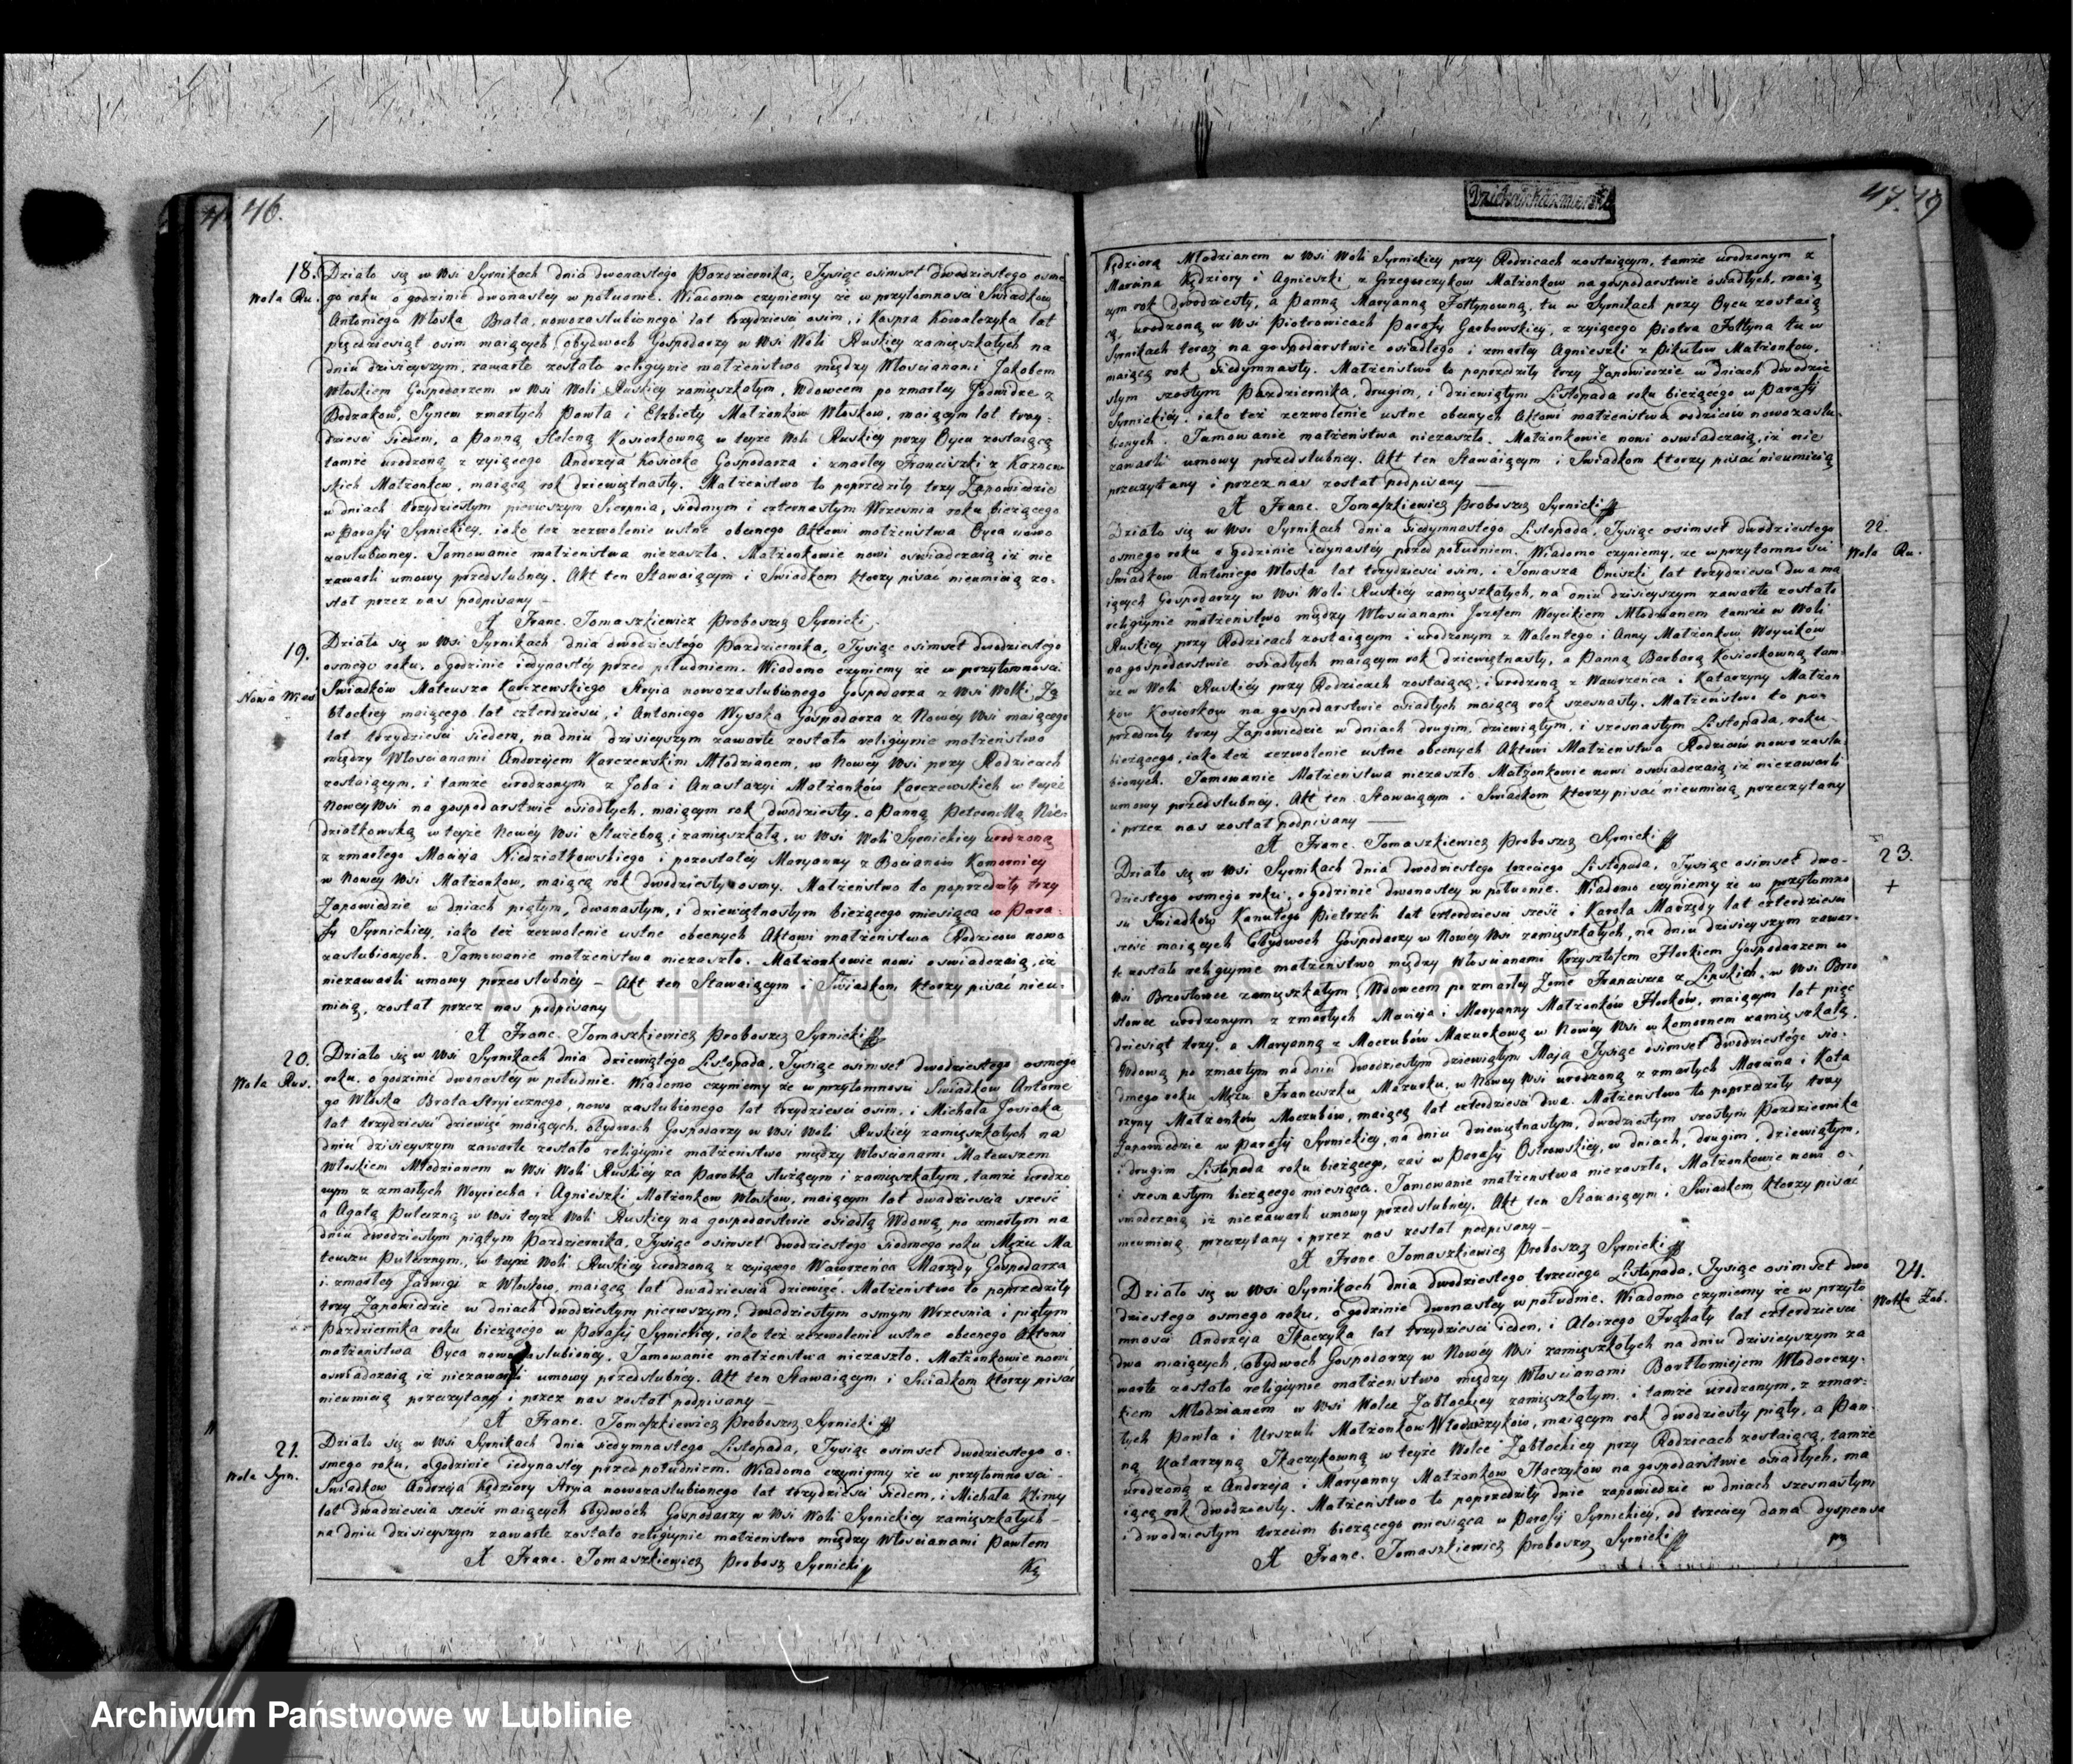 46.
18. Działo się w Wsi Syrnikach dnia dwonastego Pazdziernika, Tysiąc osimset dwudziestego osme
Wola Ru. go roku o godzinie dwonastey w południe. Wiadomo czyniemy że w przytomnosci Swiadkow
Antoniego Włoska Brata, nowozaslubionego lat trzydziesci osim, i Kaspra Kowalczyka lat
pięcdziesiąt osim maiących, obydwoch Gospodarzy w Wsi Woli Ruskiey zamięszkałych na
dniu dzisieyszym, zawarte zostało religiynie małżeństwo między Włoscianami Jakobem
Włoskiem Gospodarzem w Wsi Woli Ruskiey zamięszkałym, Wdowcem po zmarłey Jadwidze z
Bodzakow, Synem zmarłych Pawła i Elzbiety Małżonków Włoskow, maiącym lat trzy-
dziesci siedem, a Panną Heleną Kosiorkowną w teyże Woli Ruskiey przy Oycu zostaiącą
tamże urodzoną z zyiącego Andrzeja Kosiorka Gospodarza i zmarłey Franciszki z
skich Małżonkow, maiącą rok dziewiętnasty. Małżeństwo to poprzedziły trzy Zapowiedzie
w dniach trzydziestym pierwszym Sierpnia, siodmym i czternastym Wrzesnia roku bieżącego
w Parafij Syrnickiey, iako też zezwolenie ustne obecnego Aktowi małżeństwa Oyca nowo
zaslubioney. Tamowanie małżeństwa niezaszło. Małżonkowie nowi oswiadczaią iż nie
zawarli umowy przedslubney. Akt ten Stawaiącym i Swiadkom ktorzy pisać nieumieią zo-
stał przez nas podpisany —
X Franc. Tomaszkiewicz Proboszcz Syrnicki
19. Działo się w Wsi Syrnikach dnia dwudziestego Pazdziernika, Tysiąc osimset dwudziestego
osmego roku, o godzinie iedynastey przed południem. Wiadomo czyniemy że w przytomnosci
Nowa Wies Swiadków Mateusza Karczewskiego Stryia nowozaslubionego Gospodarza z Wsi Wolki Za
błockiey maiącego lat czterdziesci, i Antoniego Wysoka Gospodarza z Nowey Wsi maiącego
lat trzydziesci siedem, na dniu dzisieyszym zawarte zostało religiynie małżeństwo
między Włoscianami Andrzejem Karczewskim Młodzianem, w Nowey Wsi przy Rodzicach
zostaiącym, i tamże urodzonym z Joba i Anastazyi Małżonków Karczewskich w teyże
Nowey Wsi na gospodarstwie osiadłych, maiącym rok dwudziesty, a Panną Petronillą Nie-
działkowską w teyże Nowey Wsi Służebną i zamięszkałą, w Wsi Woli Syrnickiey urodzoną
z zmarłego Macieja Niedziałkowskiego i pozostałey Maryanny z Bocianów Komornicy
w Nowey Wsi Małżonkow, maiącą rok dwudziesty osmy. Małżeństwo to poprzedziły trzy
Zapowiedzie w dniach piątym, dwonastym, i dziewiętnastym bieżącego miesiąca w Para-
fij Syrnickiey, iako też zezwolenie ustne obecnych Aktowi małżeństwa Rodzicow nowo
zaslubionych. Tamowanie małżeństwa niezaszło. Małżonkowie nowi oswiadczaią, iż
niezawarli umowy przedslubney – Akt ten Stawaiącym i Swiadkom, ktorzy pisać nieu-
mieią, został przez nas podpisany
X Franc. Tomaszkiewicz Proboszcz Syrnicki
20. Działo się w Wsi Syrnikach dnia dziewiątego Listopada, Tysiąc osimset dwudziestego osmego
Wola Rus. roku, o godzinie dwonastey w południe. Wiadomo czyniemy że w przytomnosci Swiadkow Antonie
go Włoska Brata Stryiecznego, nowo zaslubionego lat trzydziesci osim, i Michała Josiaka
lat trzydziesci dziewięć maiących, obydwoch Gospodarzy w Wsi Woli Ruskiey zamięszkałych na
dniu dzisieyszym zawarte zostało religiynie małżeństwo między Włoscianami Mateuszem
Włoskiem Młodzianem w Wsi Woli Ruskiey za Parobka służącym i zamięszkałym, tamże urodzo
nym z zmarłych Woyciecha i Agnieszki Małżonkow Włoskow, maiącym lat dwadziescia szesć
a Agatą w Wsi teyże Woli Ruskiey na gospodarstwie osiadłą Wdową, po zmarłym na
dniu dwudziestym piątym Pazdziernika, Tysiąc osimset dwudziestego siodmego roku Mężu Ma
teuszu w teyże Woli Ruskiey urodzoną z zyiącego Wawrzeńca Marzędy Gospodarza
i zmarłey Jadwigi z Włoskow, maiącą lat dwadziescia dziewięć. Małżeństwo to poprzedziły
trzy Zapowiedzie w dniach dwudziestym pierwszym, dwudziestym osmym Wrzesnia i piątym
Pazdziernika roku bieżącego w Parafij Syrnickiey, iako też zezwolenie ustne obecnego Aktowi
małżeństwa Oyca nowozaslubioney. Tamowanie małżeństwa niezaszło. Małżonkowie nowi
oswiadczaią iż niezawarli umowy przedslubney. Akt ten Stawaiącym i Swiadkom ktorzy pisać
nieumieią przeczytany i przez nas został podpisany —
X Franc. Tomaszkiewicz Proboszcz Syrnicki
21. Działo się w Wsi Syrnikach dnia siedymnastego Listopada, Tysiąc osimset dwudziestego o-
Wola Syrn. smego roku, o godzinie iedynastey przed południem. Wiadomo czyniemy że w przytomnosci
Swiadkow Andrzeja Kędziory Stryia nowozaslubionego lat trzydziesci siedem, i Michała Klimy
lat dwadziescia szesć maiących obydwoch Gospodarzy w Wsi Woli Syrnickiey zamięszkałych –
na dniu dzisieyszym zawarte zostało religiynie małżeństwo między Włoscianami Pawłem
X Franc. Tomaszkiewicz Proboszcz Syrnicki
Kę
47. 49
Kędziorą Młodzianem w Wsi Woli Syrnickiey przy Rodzicach zostaiącym, tamże urodzonym z
Marcina Kędziory i Agnieszki z Grzegorczykow Małżonkow na gospodarstwie osiadłych, maią
cym rok dwudziesty, a Panną Maryanną Fołtynowną, tu w Syrnikach przy Oycu zostaią
cą, urodzoną w Wsi Piotrowicach Parafij Garbowskiey, z zyiącego Piotra Fołtyna tu w
Syrnikach teraz na gospodarstwie osiadłego i zmarłey Agnieszki z Pikułow Małżonkow,
maiącą rok siedymnasty. Małżeństwo to poprzedziły trzy Zapowiedzie w dniach dwudzie
stym szostym Pazdziernika, drugim, i dziewiątym Listopada roku bieżącego w Parafij
Syrnickiey, iako też zezwolenie ustne obecnych Aktowi małżeństwa rodziców nowozaslu-
bionych. Tamowanie małżeństwa niezaszło. Małżonkowie nowi oswiadczaią, iż nie
zawarli umowy przedslubney. Akt ten Stawaiącym i Swiadkom ktorzy pisać nieumieią
przeczytany i przez nas został podpisany —
X Franc. Tomaszkiewicz Proboszcz Syrnicki
Działo się w Wsi Syrnikach dnia siedymnastego Listopada, Tysiąc osimset dwudziestego 22.
osmego roku o godzinie iedynastey przed południem. Wiadomo czyniemy, że w przytomnosci Wola Ru.
Swiadkow Antoniego Włoska lat trzydziesci osim, i Tomasza Oniszki lat trzydziesci dwa ma
iących Gospodarzy w Wsi Woli Ruskiey zamięszkałych, na dniu dzisieyszym zawarte zostało
religiynie małżeństwo między Włoscianami Jozefem Woycikiem Młodzianem tamże w Woli
Ruskiey przy Rodzicach zostaiącym i urodzonym z Walentego i Anny Małżonkow Woycików
na gospodarstwie osiadłych maiącym rok dziewiętnasty, a Panną Barbarą Kosiorkowną tam-
że w Woli Ruskiey przy Rodzicach zostaiącą, i urodzoną z Wawrzeńca i Katarzyny Małżon
kow Kosiorkow na gospodarstwie osiadłych maiącą rok szesnasty. Małżeństwo to po-
przedziły trzy Zapowiedzie w dniach drugim, dziewiątym, i szesnastym Listopada, roku
bieżącego, iako też zezwolenie ustne obecnych Aktowi Małżeństwa Rodziców nowo zaslu-
bionych. Tamowanie Małżeństwa niezaszło. Małżonkowie nowi oswiadczaią iż niezawarli
umowy przedslubney. Akt ten Stawaiącym i Swiadkom ktorzy pisać nieumieią przeczytany
i przez nas został podpisany —
X Franc. Tomaszkiewicz Proboszcz Syrnicki
Działo się w Wsi Syrnikach dnia dwudziestego trzeciego Listopada, Tysiąc osimset dwu- 23.
dziestego osmego roku, o godzinie dwonastey w południe. Wiadomo czyniemy że w przytomno +
sci Swiadkow Kanutego Pietrzeli lat czterdziesci szesć i Karola Marzędy lat czterdziesci
szesć maiących Obydwoch Gospodarzy w Nowey Wsi zamięszkałych, na dniu dzisieyszym zawar-
te zostało religiynie małżeństwo między Włoscianami Krzysztofem Florkiem Gospodarzem w
Wsi Brzostowce zamięszkałym, Wdowcem po zmarłey Zonie Franciszce z Lipskich, w Wsi Brzo
stowce urodzonym z zmarłych Macieja i Maryanny Małżonków Florków, maiącym lat pięć
dziesiąt trzy, a Maryanną z Moczubów Mazurkową w Nowey Wsi w komornem zamięszkałą,
Wdową po zmarłym na dniu dwudziestym dziewiątym Maja Tysiąc osimset dwudziestego sio-
dmego roku Mężu Franciszku Mazurku, w Nowey Wsi urodzoną z zmarłych Marcina i Kata
rzyny Małżonków Moczubów, maiącą lat czterdziesci dwa. Małżeństwo to poprzedziły trzy
Zapowiedzie w Parafij Syrnickiey, na dniu dziewiętnastym, dwudziestym szostym Pazdziernika
i drugim Listopada roku bieżącego, zaś w Parafij Ostrowskiey, w dniach, drugim, dziewiątym,
i szesnastym bieżącego miesiąca. Tamowanie małżeństwa niezaszło. Małżonkowie nowi o-
swiadczaią iż niezawarli umowy przedslubney. Akt ten Stawaiącym i Swiadkom ktorzy pisać
nieumieią przeczytany i przez nas został podpisany —
X Franc Tomaszkiewicz Proboszcz Syrnicki
Działo się w Wsi Syrnikach dnia dwudziestego trzeciego Listopada, Tysiąc osimset dwu 24.
dziestego osmego roku, o godzinie dwonastey w południe. Wiadomo czyniemy że w przyto Wolka Zab.
mnosci Andrzeja Tkaczyka lat trzydziesci ieden, i Aloizego lat czterdziesci
dwa maiących, obydwoch Gospodarzy w Nowey Wsi zamięszkałych na dniu dzisieyszym za
warte zostało religiynie małżeństwo między Włoscianami Bartłomiejem Włodarczy-
kiem Młodzianem w Wsi Wolce Zabłockiey zamięszkałym i tamże urodzonym, z zmar-
łych Pawła i Urszuli Małżonkow Włodarczyków, maiącym rok dwudziesty piąty, a Pan-
ną Katarzyną Tkaczykowną w teyże Wolce Zabłockiey przy Rodzicach zostaiącą, tamże
urodzoną z Andrzeja i Maryanny Małżonkow Tkaczykow na gospodarstwie osiadłych, ma
iącą rok dwudziesty. Małżeństwo to poprzedziły dwie zapowiedzie w dniach szesnastym
i dwudziestym trzecim bieżącego miesiąca w Parafij Syrnickiey, od trzeciey dana dyspensa
X Franc. Tomaszkiewicz Proboszcz Syrnicki
Archiwum Państwowe w Lublinie